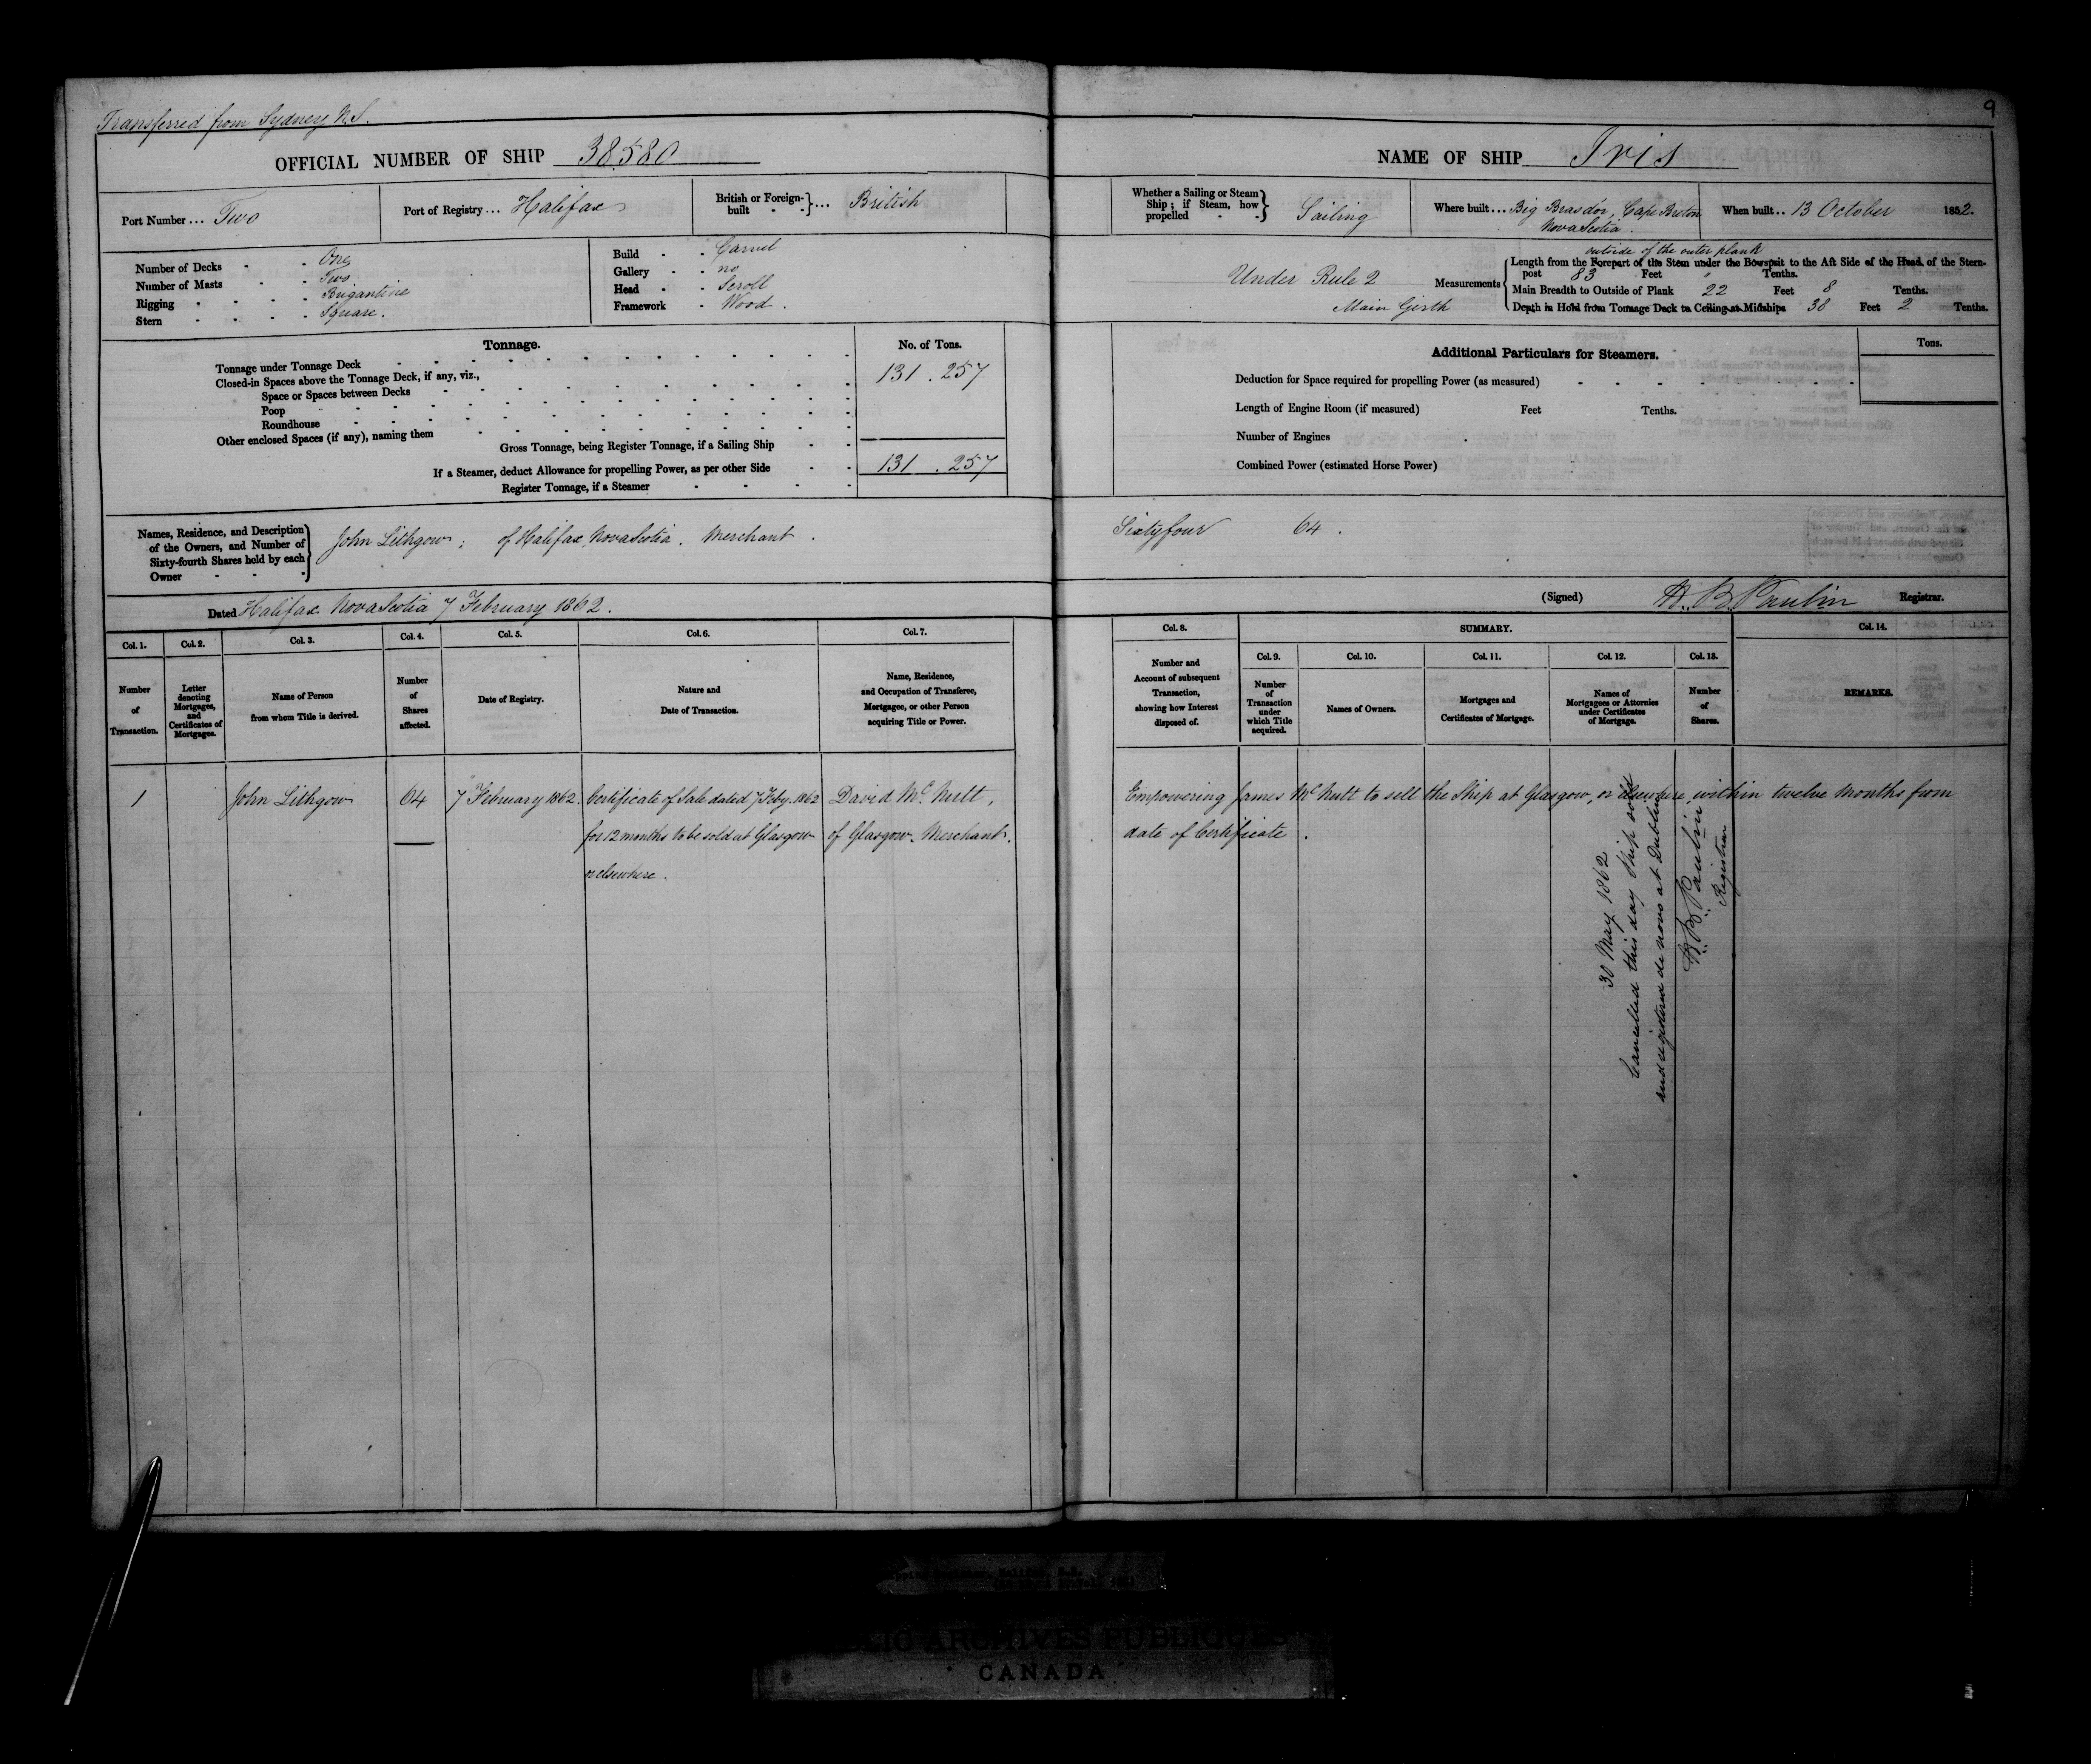 Transferred from Sydney N.S.
9
OFFICIAL NUMBER OF SHIP 38580
NAME OF SHIP Iris
Port Number ... Two
Port of Registry ... Halifax
British or Foreign-built } ... British
Whether a Sailing or Steam Ship; if Steam, how propelled } Sailing
Where built ... Big Brasdor, Cape Breton Nova Scotia.
When built .. 13 October 1852.
Number of Decks - - One
Number of Masts - - Two
Rigging - - - - Brigantine
Stern - - - - Square.
Build - - Carvel
Gallery - - no
Head - - Scroll
Framework - Wood.
Under Rule 2
Main Girth
Measurements
outside of the outer plank
Length from the Forepart of the Stem under the Bowsprit to the Aft Side of the Head of the Stern-
post 83 Feet " Tenths.
Main Breadth to Outside of Plank 22 Feet 8 Tenths.
Depth in Hold from Tonnage Deck to Ceiling at Midships 38 Feet 2 Tenths.
Tonnage.
No. of Tons.
Tonnage under Tonnage Deck 131.257
Closed-in Spaces above the Tonnage Deck, if any, viz.,
Space or Spaces between Decks
Poop
Roundhouse
Other enclosed Spaces (if any), naming them
Gross Tonnage, being Register Tonnage, if a Sailing Ship 131.257
If a Steamer, deduct Allowance for propelling Power, as per other Side
Register Tonnage, if a Steamer
Additional Particulars for Steamers.
Tons.
Deduction for Space required for propelling Power (as measured)
Length of Engine Room (if measured) Feet Tenths.
Number of Engines
Combined Power (estimated Horse Power)
Names, Residence, and Description
of the Owners, and Number of
Sixty-fourth Shares held by each
Owner
John Lithgow; of Halifax, Nova Scotia. Merchant.
Sixtyfour 64.
Dated Halifax Nova Scotia 7 February 1862.
(Signed) H. B. Paulin Registrar.
Col. 1. Col. 2. Col. 3. Col. 4. Col. 5. Col. 6. Col. 7.
Col. 8. SUMMARY. Col. 14.
Col. 9. Col. 10. Col. 11. Col. 12. Col. 13.
Number of Transaction.
Letter denoting Mortgages, and Certificates of Mortgages.
Name of Person from whom Title is derived.
Number of Shares affected.
Date of Registry.
Nature and Date of Transaction.
Name, Residence, and Occupation of Transferee, Mortgagee, or other Person acquiring Title or Power.
Number and Account of subsequent Transaction, showing how Interest disposed of.
Number of Transaction under which Title acquired.
Names of Owners.
Mortgages and Certificates of Mortgage.
Names of Mortgagees or Attornies under Certificates of Mortgage.
Number of Shares.
REMARKS.
1 John Lithgow 64 7 February 1862. Certificate of Sale dated 7 Feby. 1862 David McNutt,
for 12 months to be sold at Glasgow of Glasgow. Merchant.
or elsewhere.
Empowering James McNutt to sell the Ship at Glasgow, or elsewhere, within twelve months from
date of Certificate.
30 May 1862
Cancelled this day Ship sold
and registered de novo at Dublin
H. B. Paulin
Registrar
ARCHIVES PUBLIQUES
CANADA